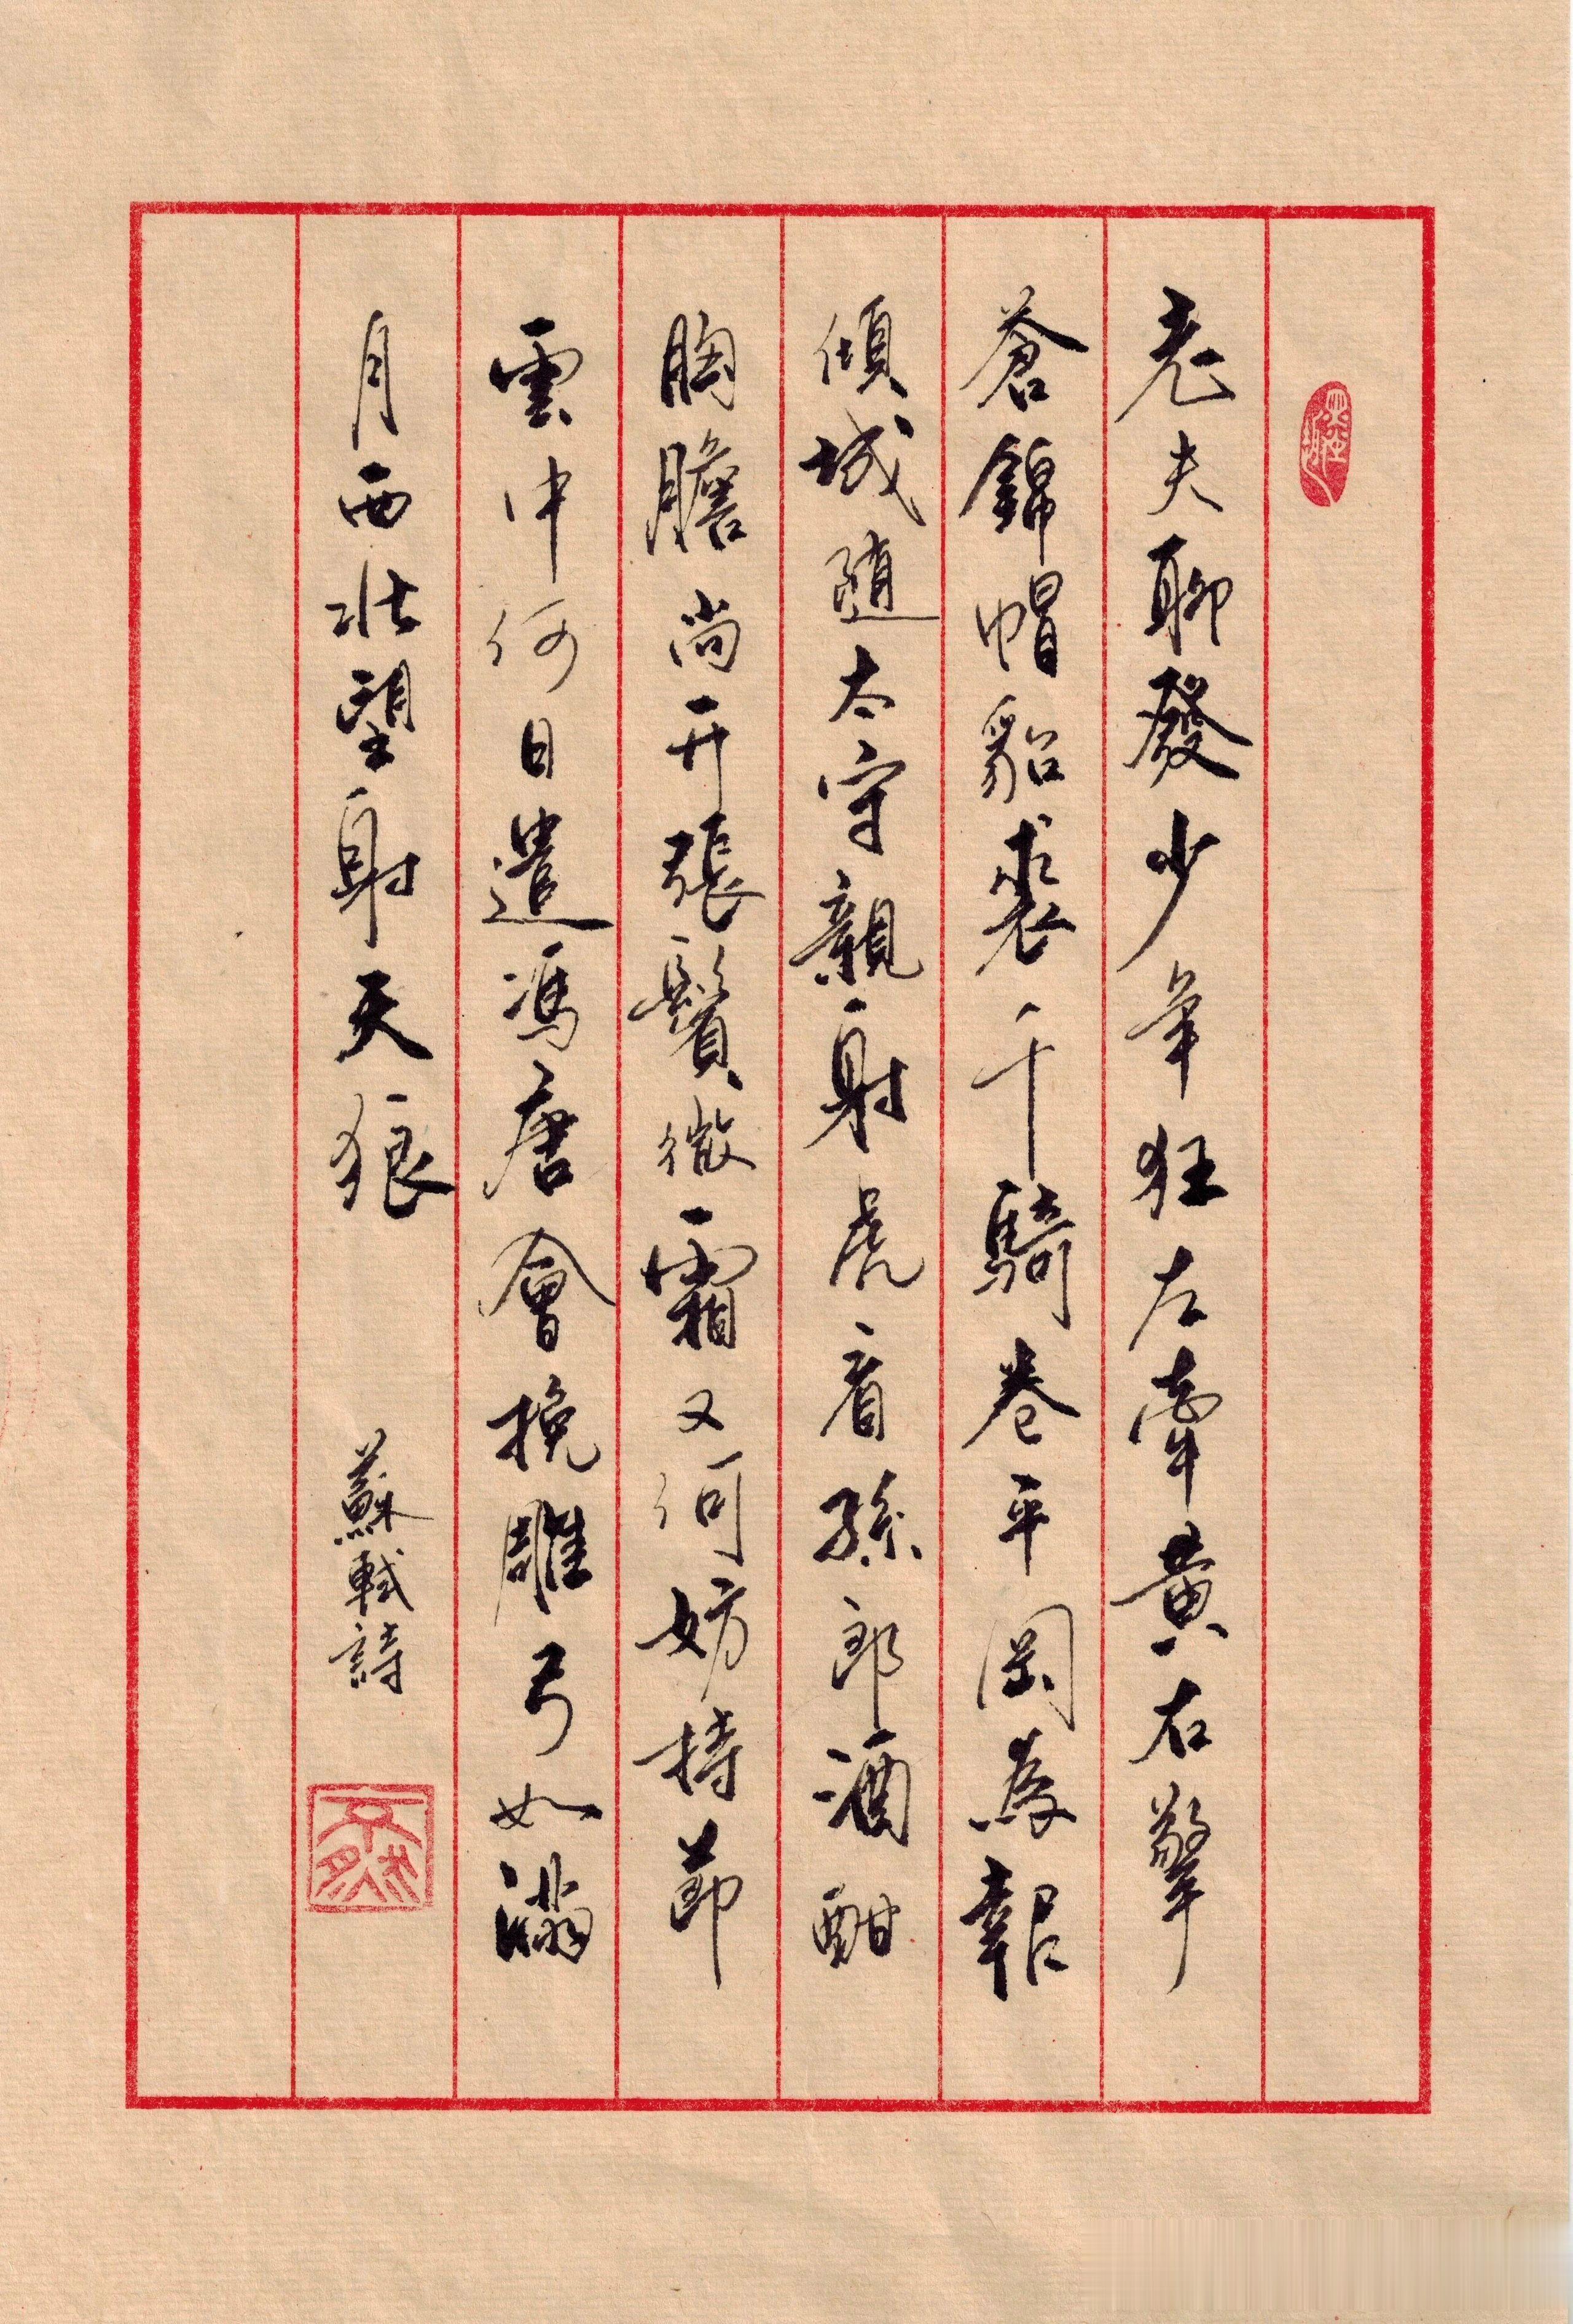 老夫聊發少年狂左牽黃右擎
蒼錦帽貂裘千騎卷平岡為報
傾城隨太守親射虎看孫郎酒酣
胸膽尚開張鬢微霜又何妨持節
雲中何日遣馮唐會挽雕弓如滿
月西北望射天狼
蘇軾詩